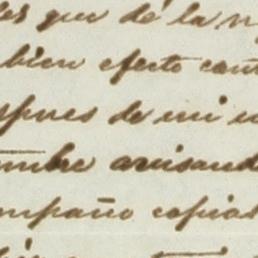 les que dé la n
bien efecto can
spues de mi
embre avisand
ompaño copia